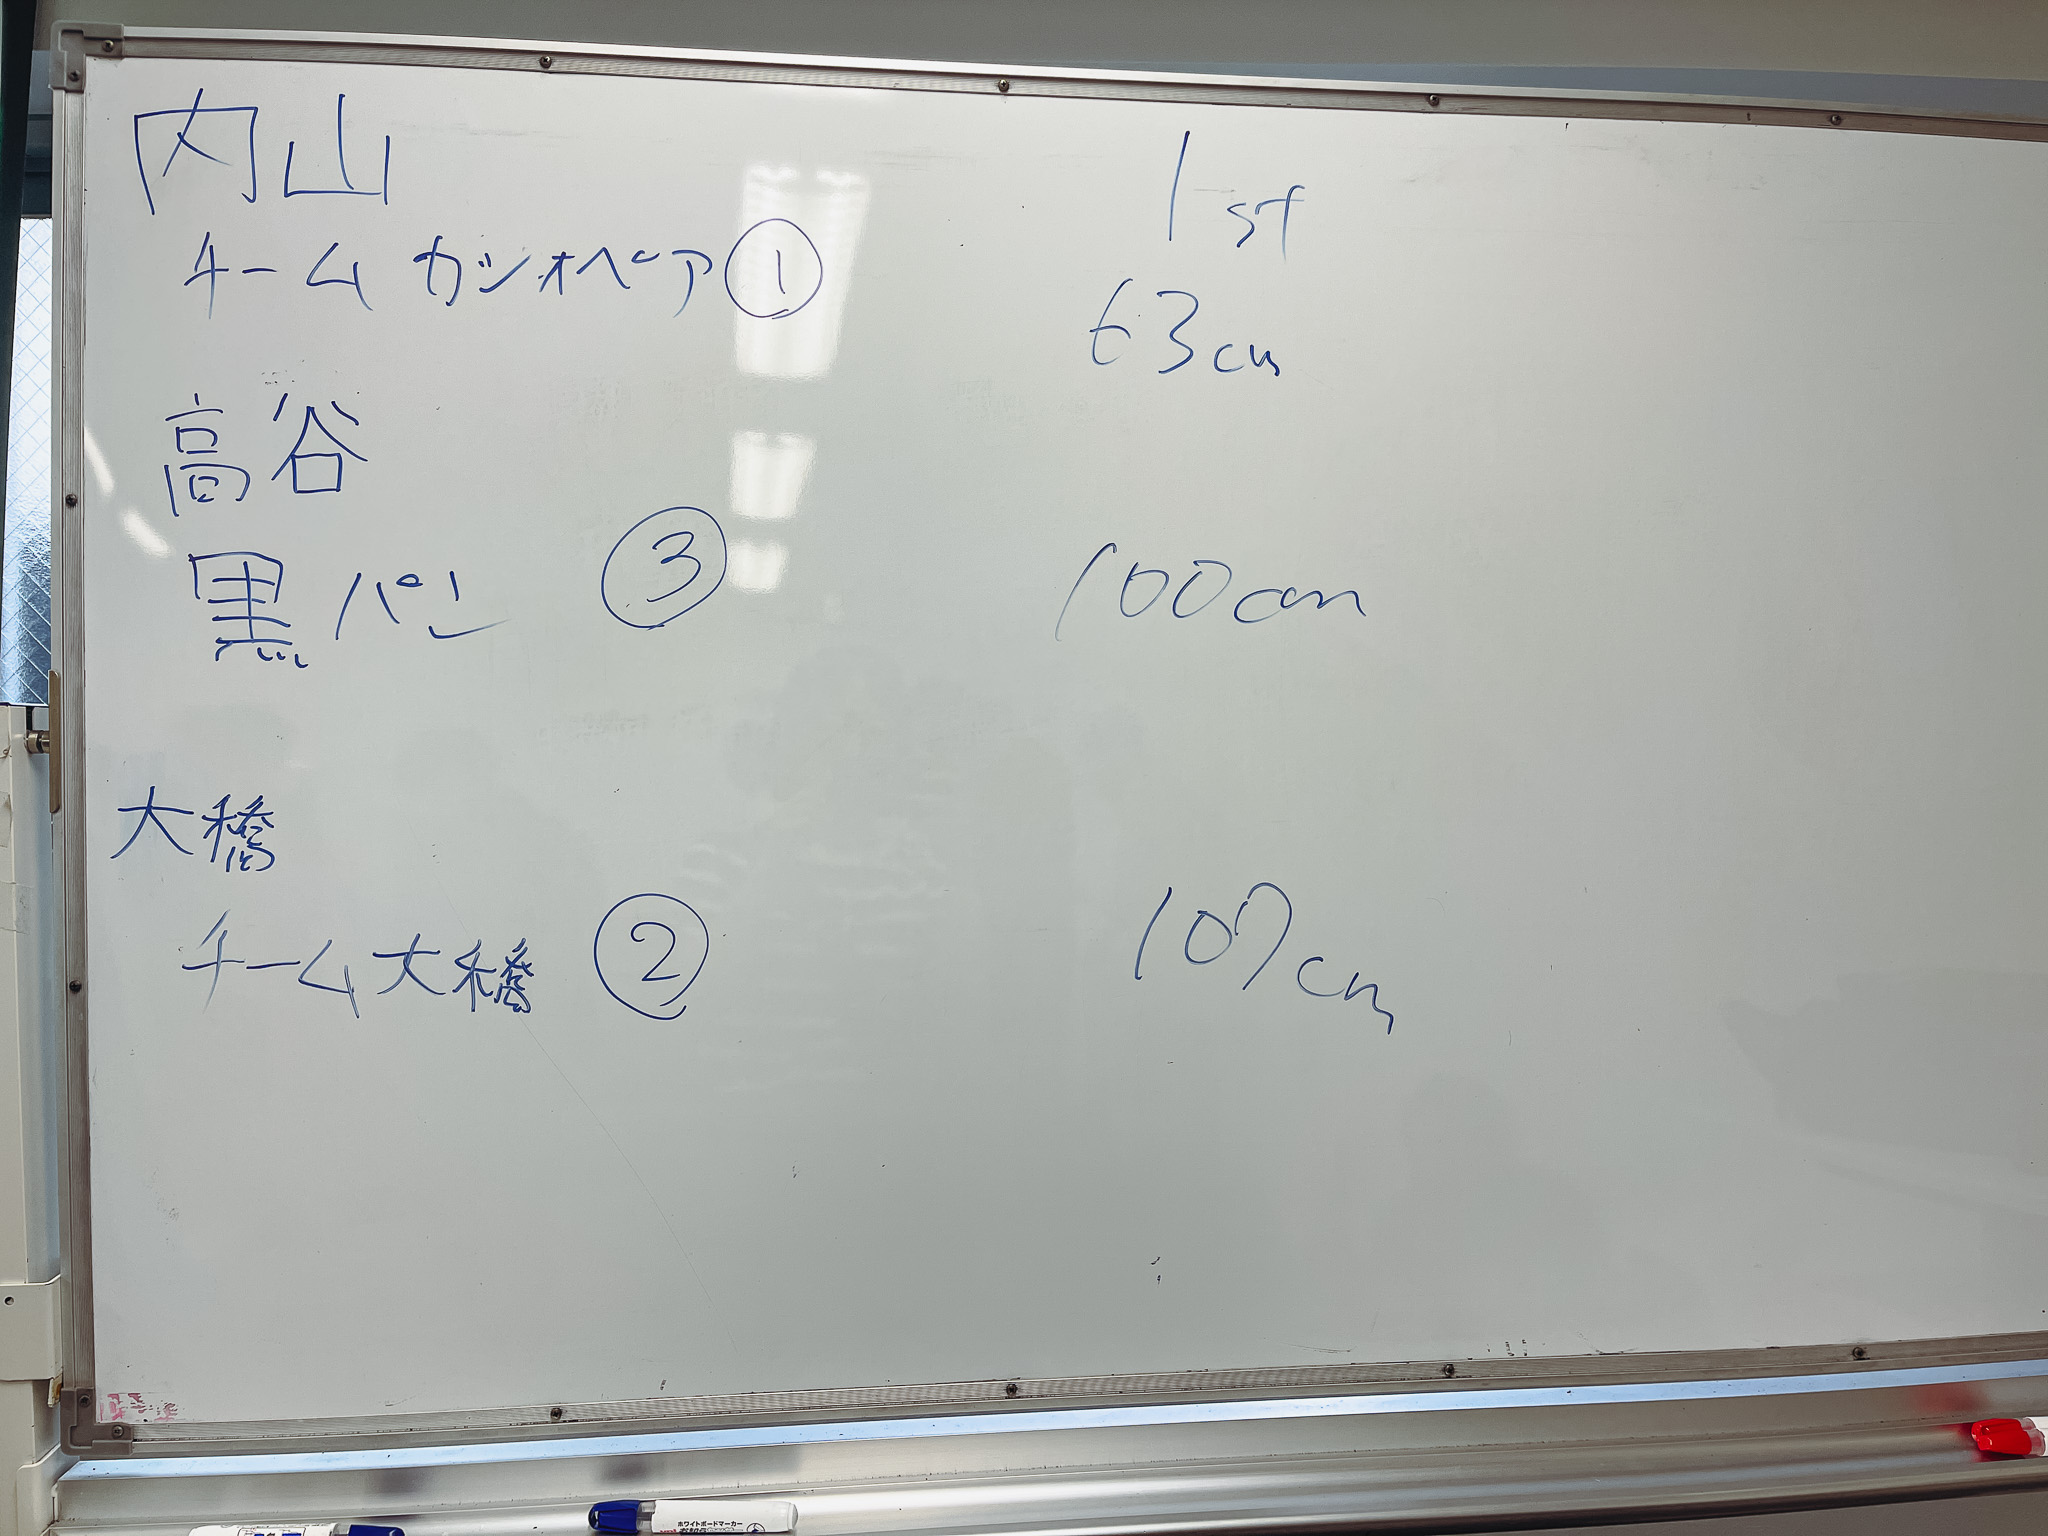 内山
チーム カシオペア ①
1st
63cm
高谷
黒パン ③
100cm
大橋
チーム大橋 ②
107cm
ホワイトボードマーカー